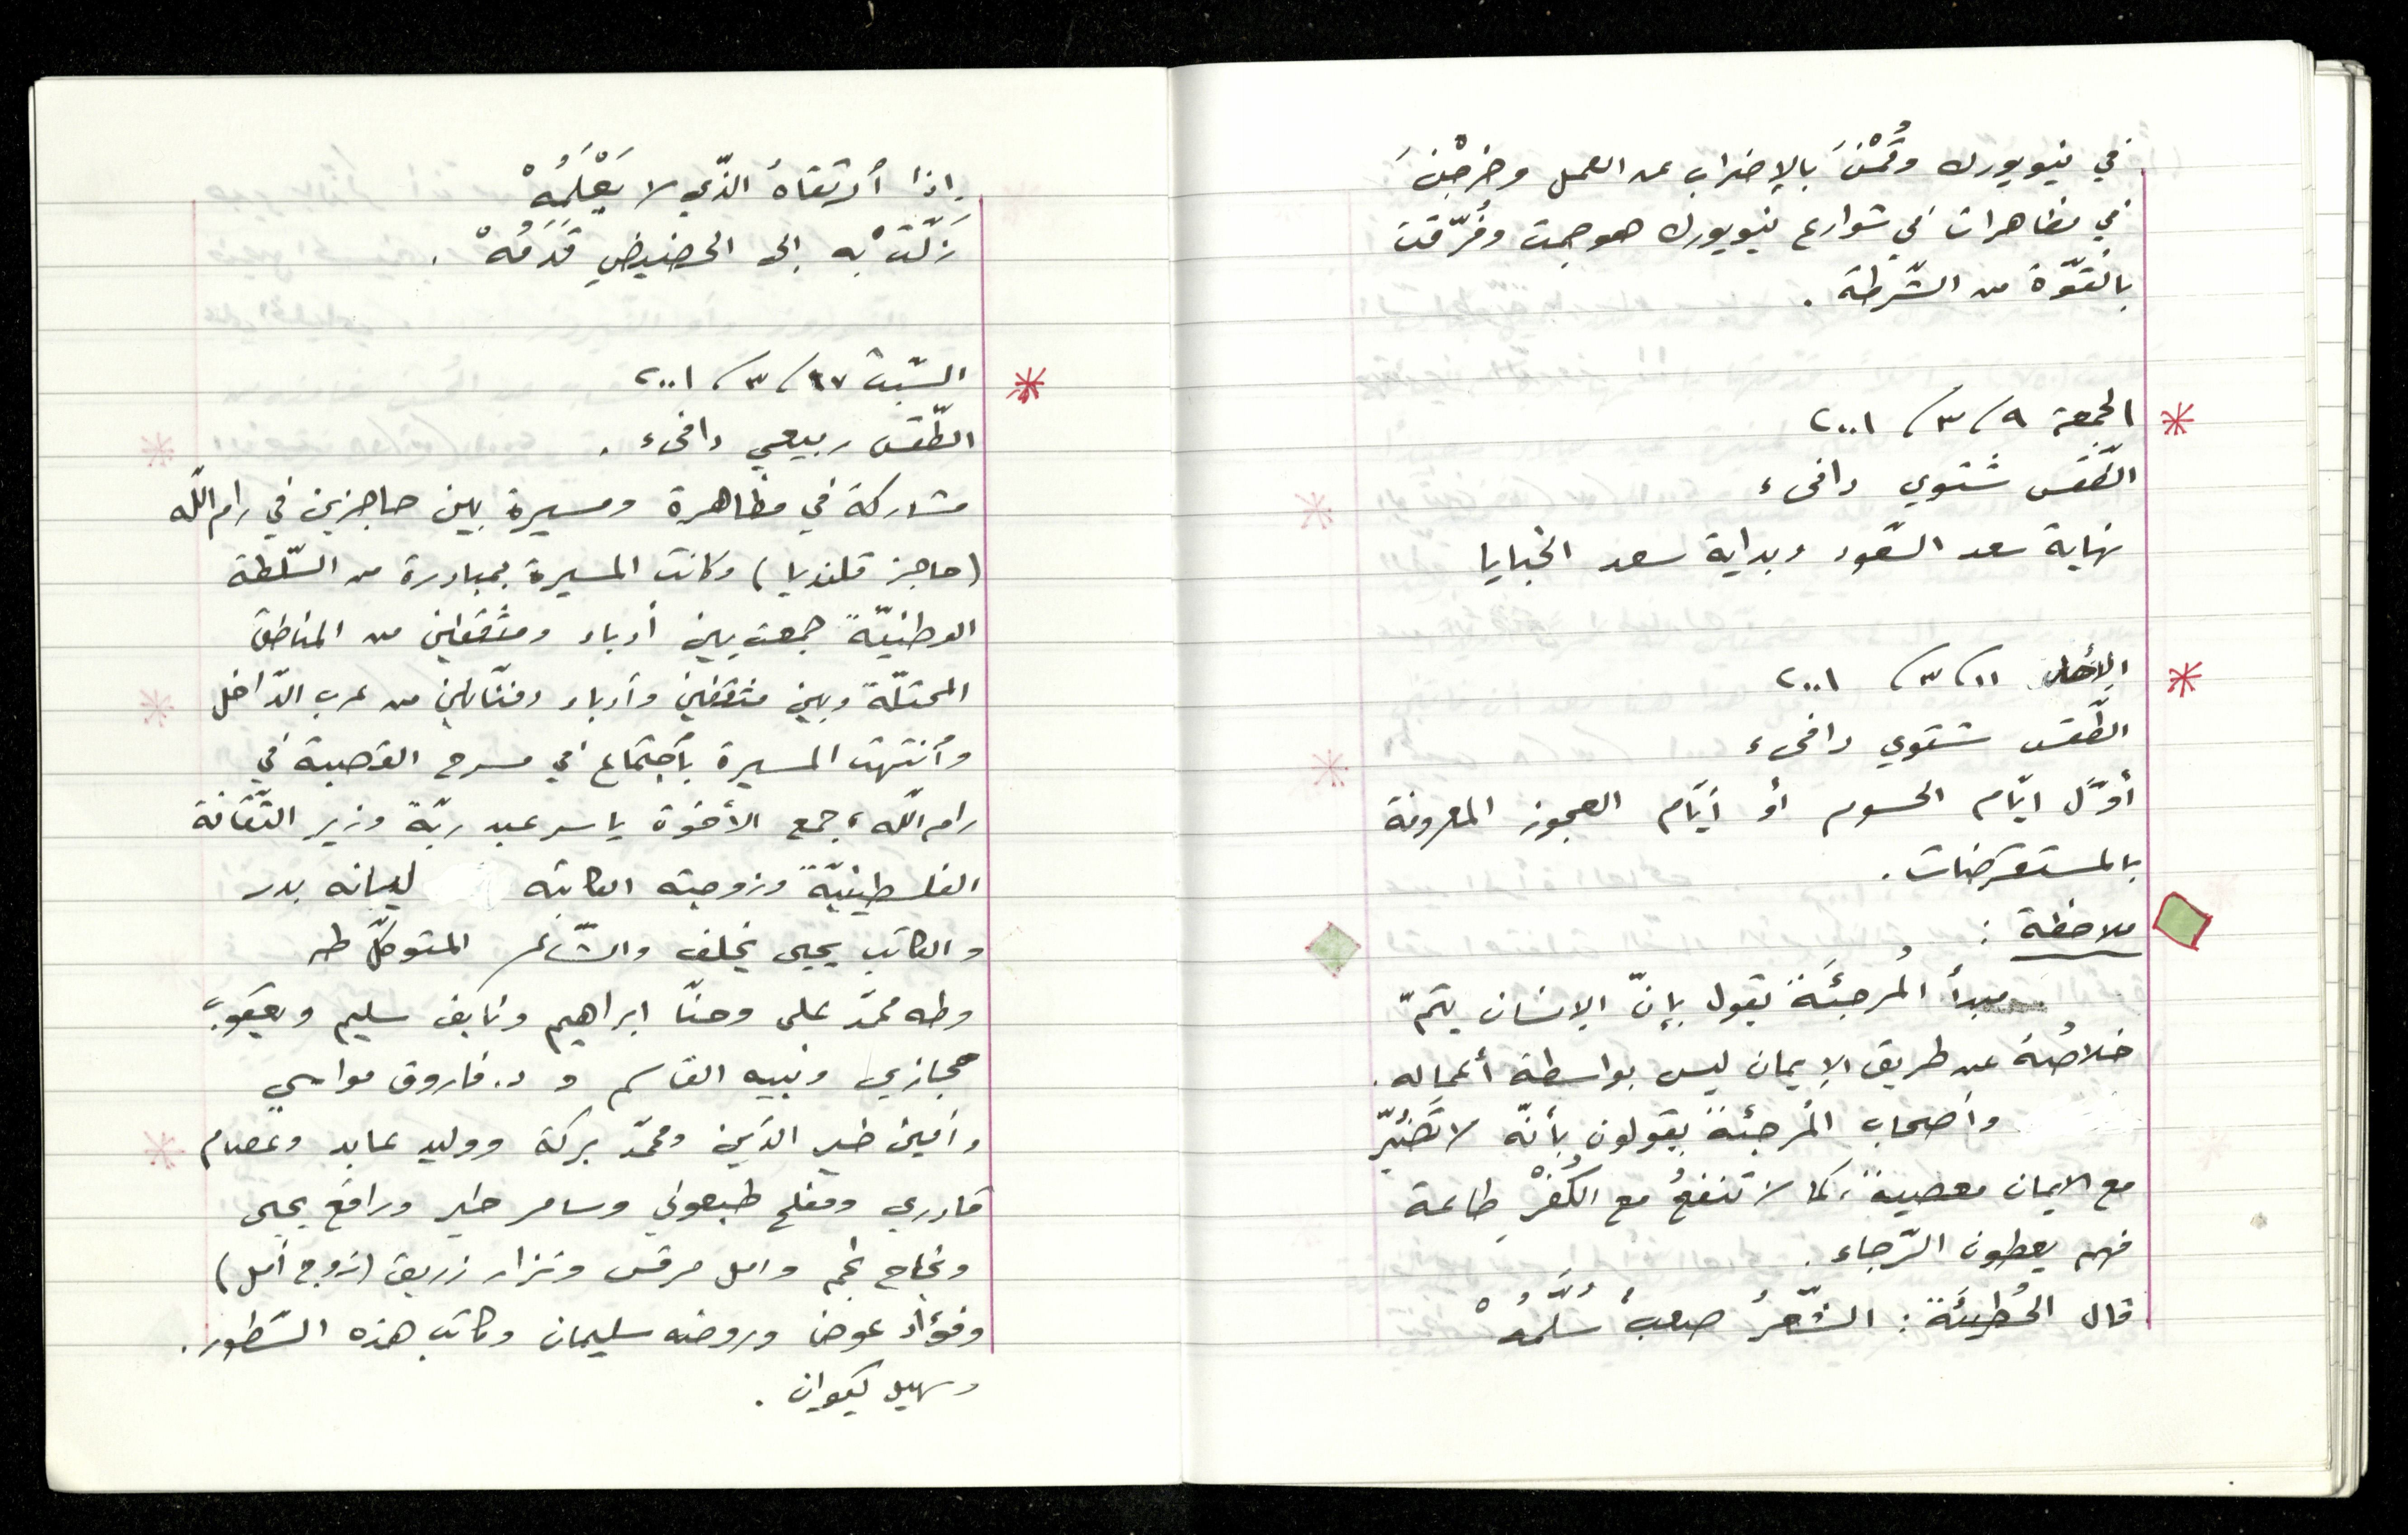 في نيويورك وقُمْنَ بالإضراب عن العمل وخرجْنَ
في مظاهرات في شوارع نيويورك هوجمت وفُرّقت
بالقوّة من الشّرطة .
الجمعة ٩/ ٣/ ٢٠٠١
الطّقس شتوي دافىء
نهاية سعد السّعود وبداية سعد الخبايا
الأحد ١١/ ٣/ ٢٠٠١
الطّقس شتوي دافىء
أوّل ايّام الحسوم أو أيّام العجوز المعروفة
بالمستقرضات .
ملاحظة :
مبدأ المُرجئَة يقول بإنّ الإنسان يتمّ
خلاصُهُ عن طريق الإيمان ليس بواسطة أعماله .
وأصحاب المُرجئة يقولون بأنّه لا تَضُرّ
مع الايمان معصية ، كما لا تنفعُ مع الكُفْرِ طاعة
فهم يعطون الرّجاء .
قال الحُطيئَة : الشّعرُ صعبٌ سُلَّمُهْ
إذا أرتقاهُ الذّي لا يَعْلَمُهْ
زَلّتْ به إلى الحضيضِ قَدَمُهْ .
السّبت ١٧/ ٣/ ٢٠٠١
الطّقس ربيعي دافىء .
مشاركة في مظاهرة ومسيرة بين حاجزين في رام اللّه
(حاجز قلنديا) وكانت المسيرة بمبادرة من السّلطة
الوطنيّة جمعت بين أدباء ومثقفين من المناطق
المحتلّة وبين مثقفين وأدباء وفنّانين من عرب الدّاخل
وأنتهت المسيرة بأجتماع في مسرح القصبة في
رام اللّه ، جمع الأخوة ياسر عبد ربّة وزير الثّقافة
الفلسطينيّة وزوجته الكاتبة ليانه بدر
والكاتب يحيى يخلف والشّاعر المتوكّل طه
وطه محمّد علي وحنّا ابراهيم ونايف سليم ويعقوب
حجازي ونبيه القاسم و د. فاروق مواسي
وأمين خير الدّين ومحمّد بركة ووليد عابد وعصام
قادري ومفلح طبعوني وسامر خير ورافع يحيى
ونجاح نجم وامل مرقس ونزار زريق (زوج أمل)
وفؤاد عوض وروضه سليمان وكاتب هذه السّطور .
وسهيل كيوان .